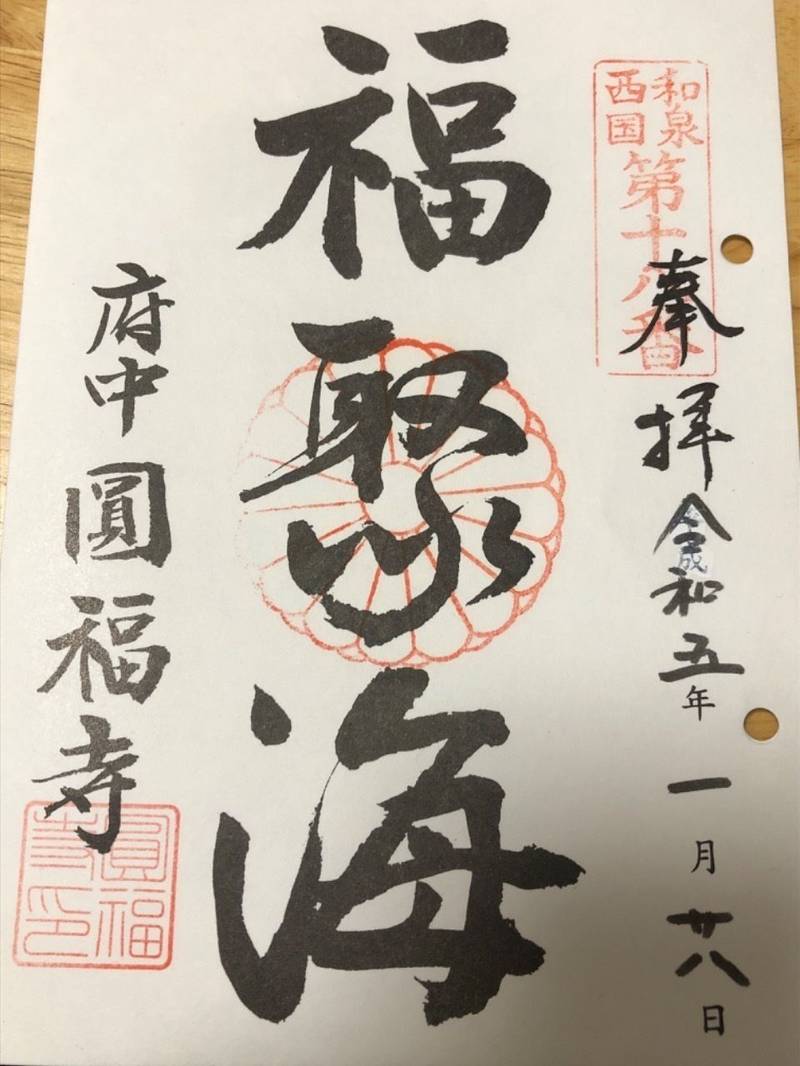 和泉
西国
第十八番
奉拝 令和五年一月廿八日
福聚海
府中 圓福寺
圓福
寺印